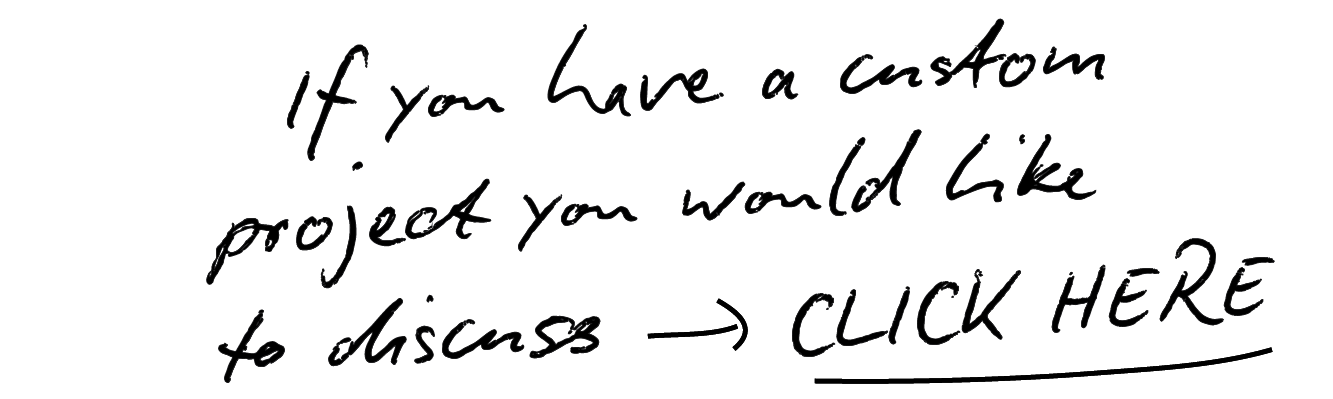 If you have a custom
project you would like
to discuss → CLICK HERE